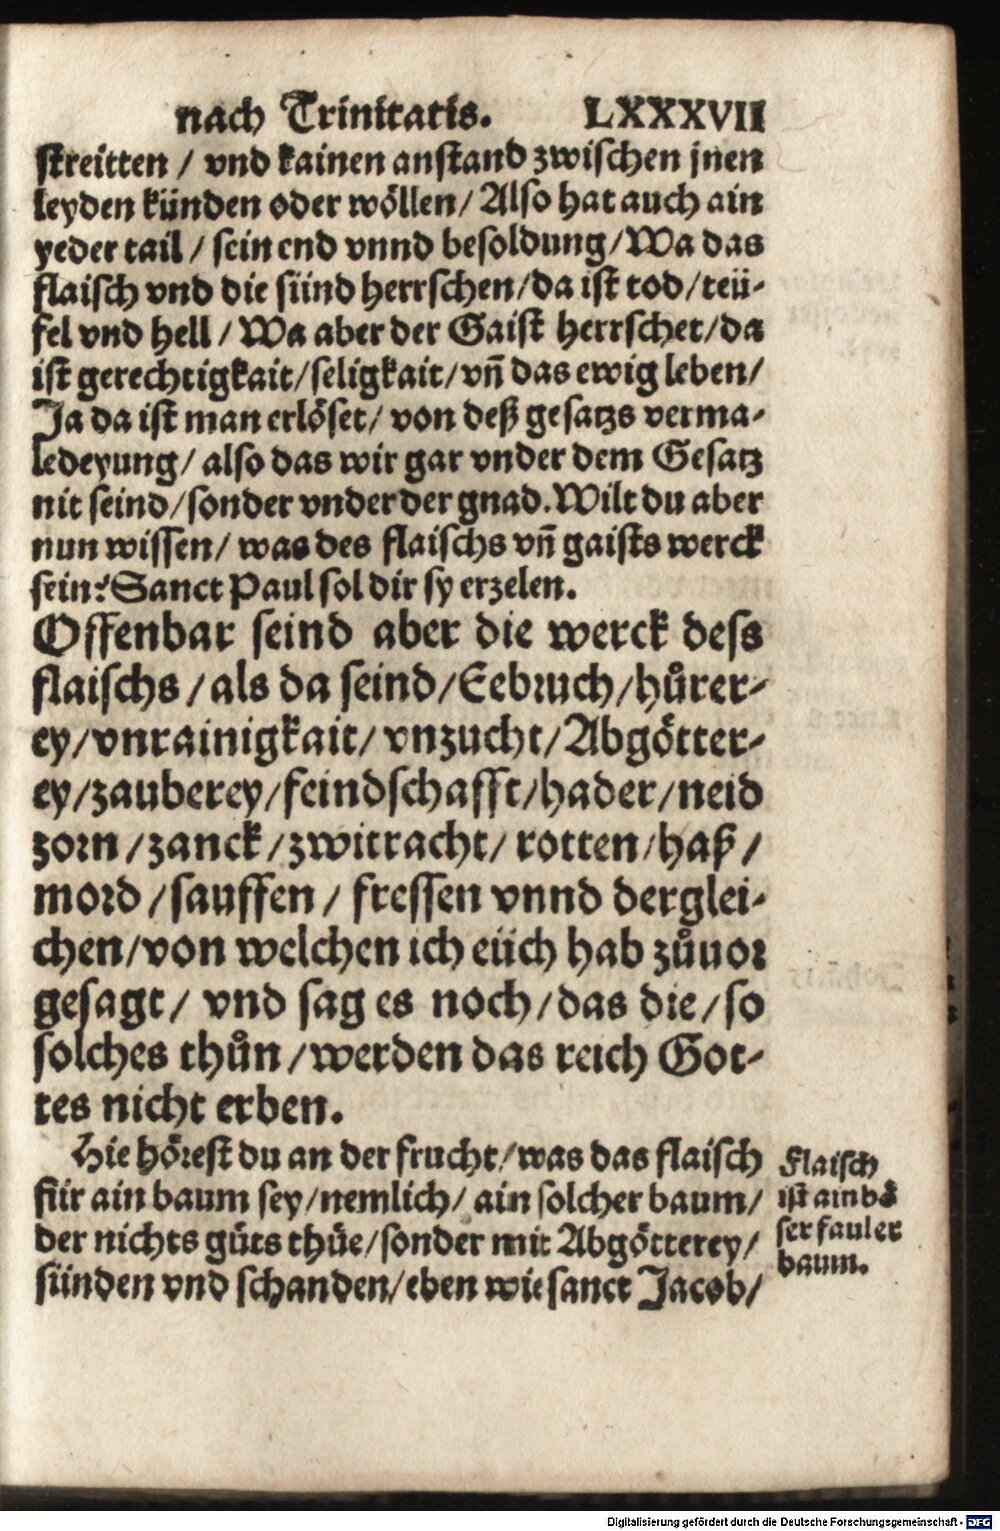 nach Trinitatis. LXXXVII
streitten / vnd kainen anstand zwischen jnen
leyden künden oder wöllen / Also hat auch ain
yeder tail / sein end vnnd besoldung / Wa das
flaisch vnd die sünd herrschen / da ist tod / teü-
fel vnd hell / Wa aber der Gaist herrschet / da
ist gerechtigkait / seligkait / vñ das ewig leben /
Ja da ist man erlöset / von deß gesatzs verma-
ledeyung / also das wir gar vnder dem Gesatz
nit seind / sonder vnder der gnad. Wilt du aber
nun wissen / was des flaischs vñ gaists werck
sein? Sanct Paul sol dir sy erzelen.
Offenbar seind aber die werck dess
flaischs / als da seind / Eebruch / hůrer-
ey / vnrainigkait / vnzucht / Abgötter-
ey / zauberey / feindschafft / hader / neid
zorn / zanck / zwitracht / rotten / haß /
mord / sauffen / fressen vnnd derglei-
chen / von welchen ich eüch hab zůuor
gesagt / vnd sag es noch / das die / so
solches thůn / werden das reich Got-
tes nicht erben.
Hie hörest du an der frucht / was das flaisch
für ain baum sey / nemlich / ain solcher baum /
der nichts gůts thüe / sonder mit Abgötterey /
sünden vnd schanden / eben wie sanct Jacob /
Flaisch
ist ain bö
ser fauler
baum.
Digitalisierung gefördert durch die Deutsche Forschungsgemeinschaft - DFG